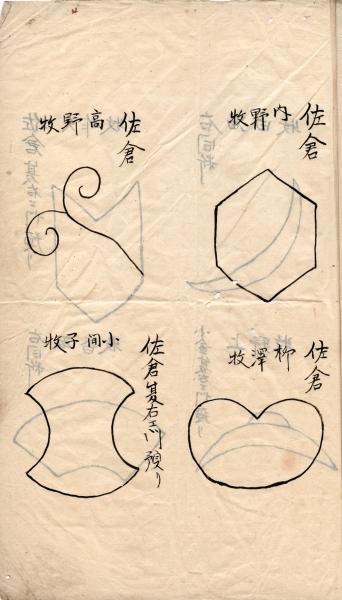 佐倉
内野牧
佐倉
高野牧
佐倉
柳澤牧
佐倉甚右エ門預り
小間子牧